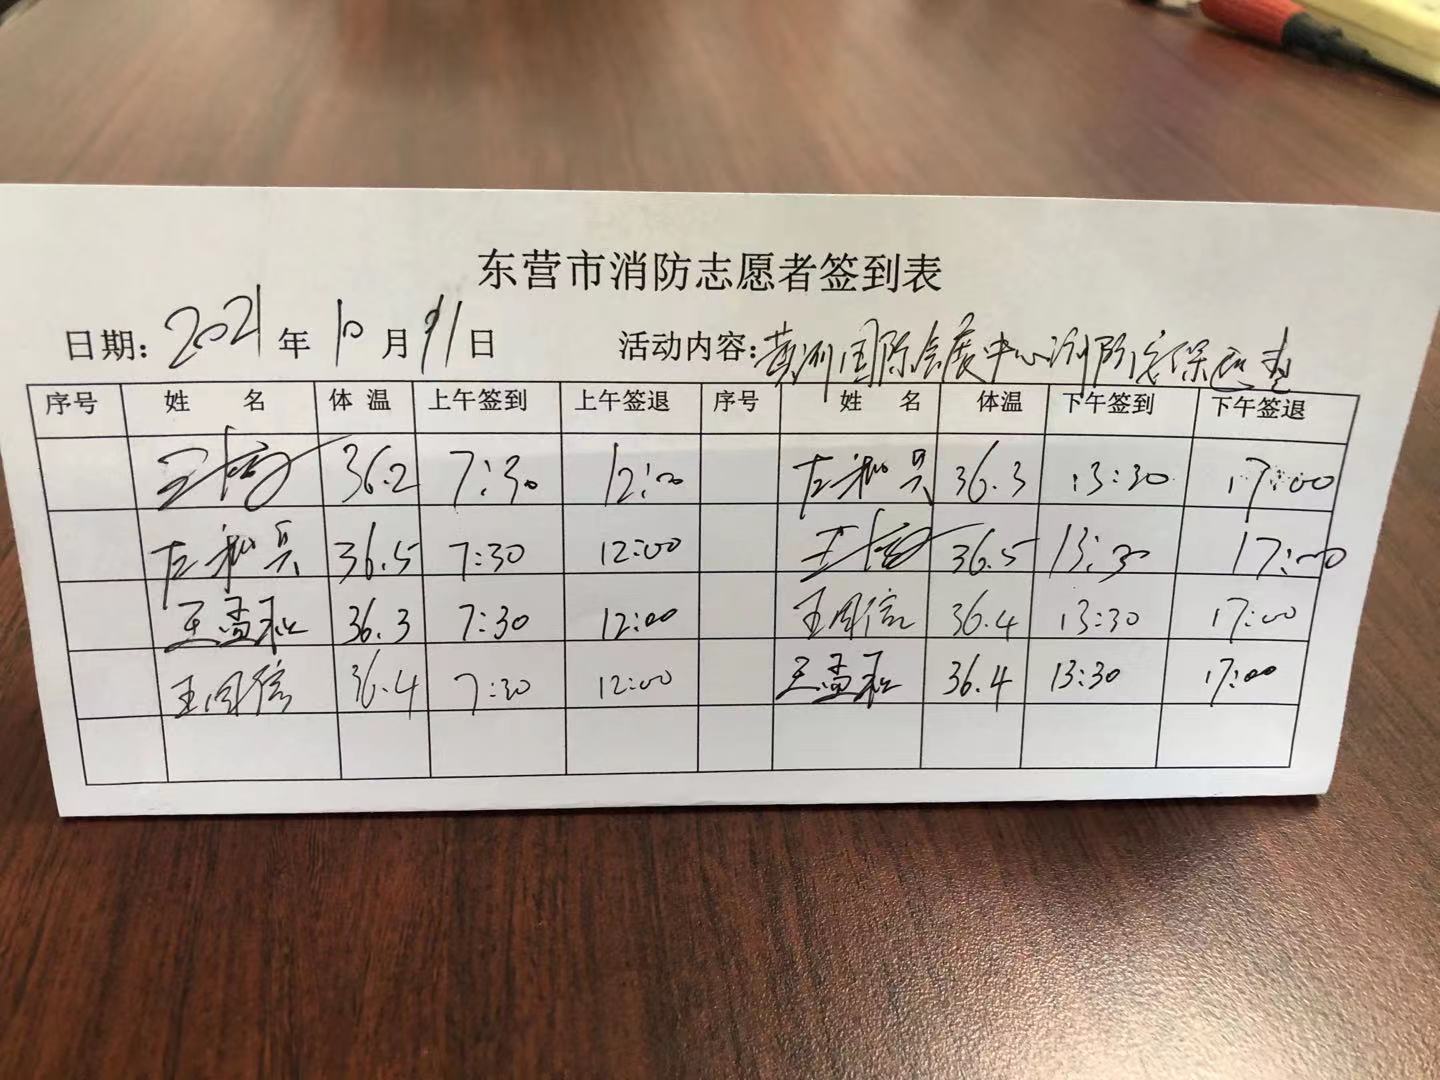 东营市消防志愿者签到表
日期: 2021 年 10 月 11 日 活动内容: 黄河国际会展中心消防安保巡查
序号 姓 名 体 温 上午签到 上午签退 序号 姓 名 体温 下午签到 下午签退
王 36.2 7:30 12:00 左 36.3 13:30 17:00
左 36.5 7:30 12:00 王 36.5 13:30 17:00
王孟 36.3 7:30 12:00 王同信 36.4 13:30 17:00
王同信 36.4 7:30 12:00 王孟 36.4 13:30 17:00